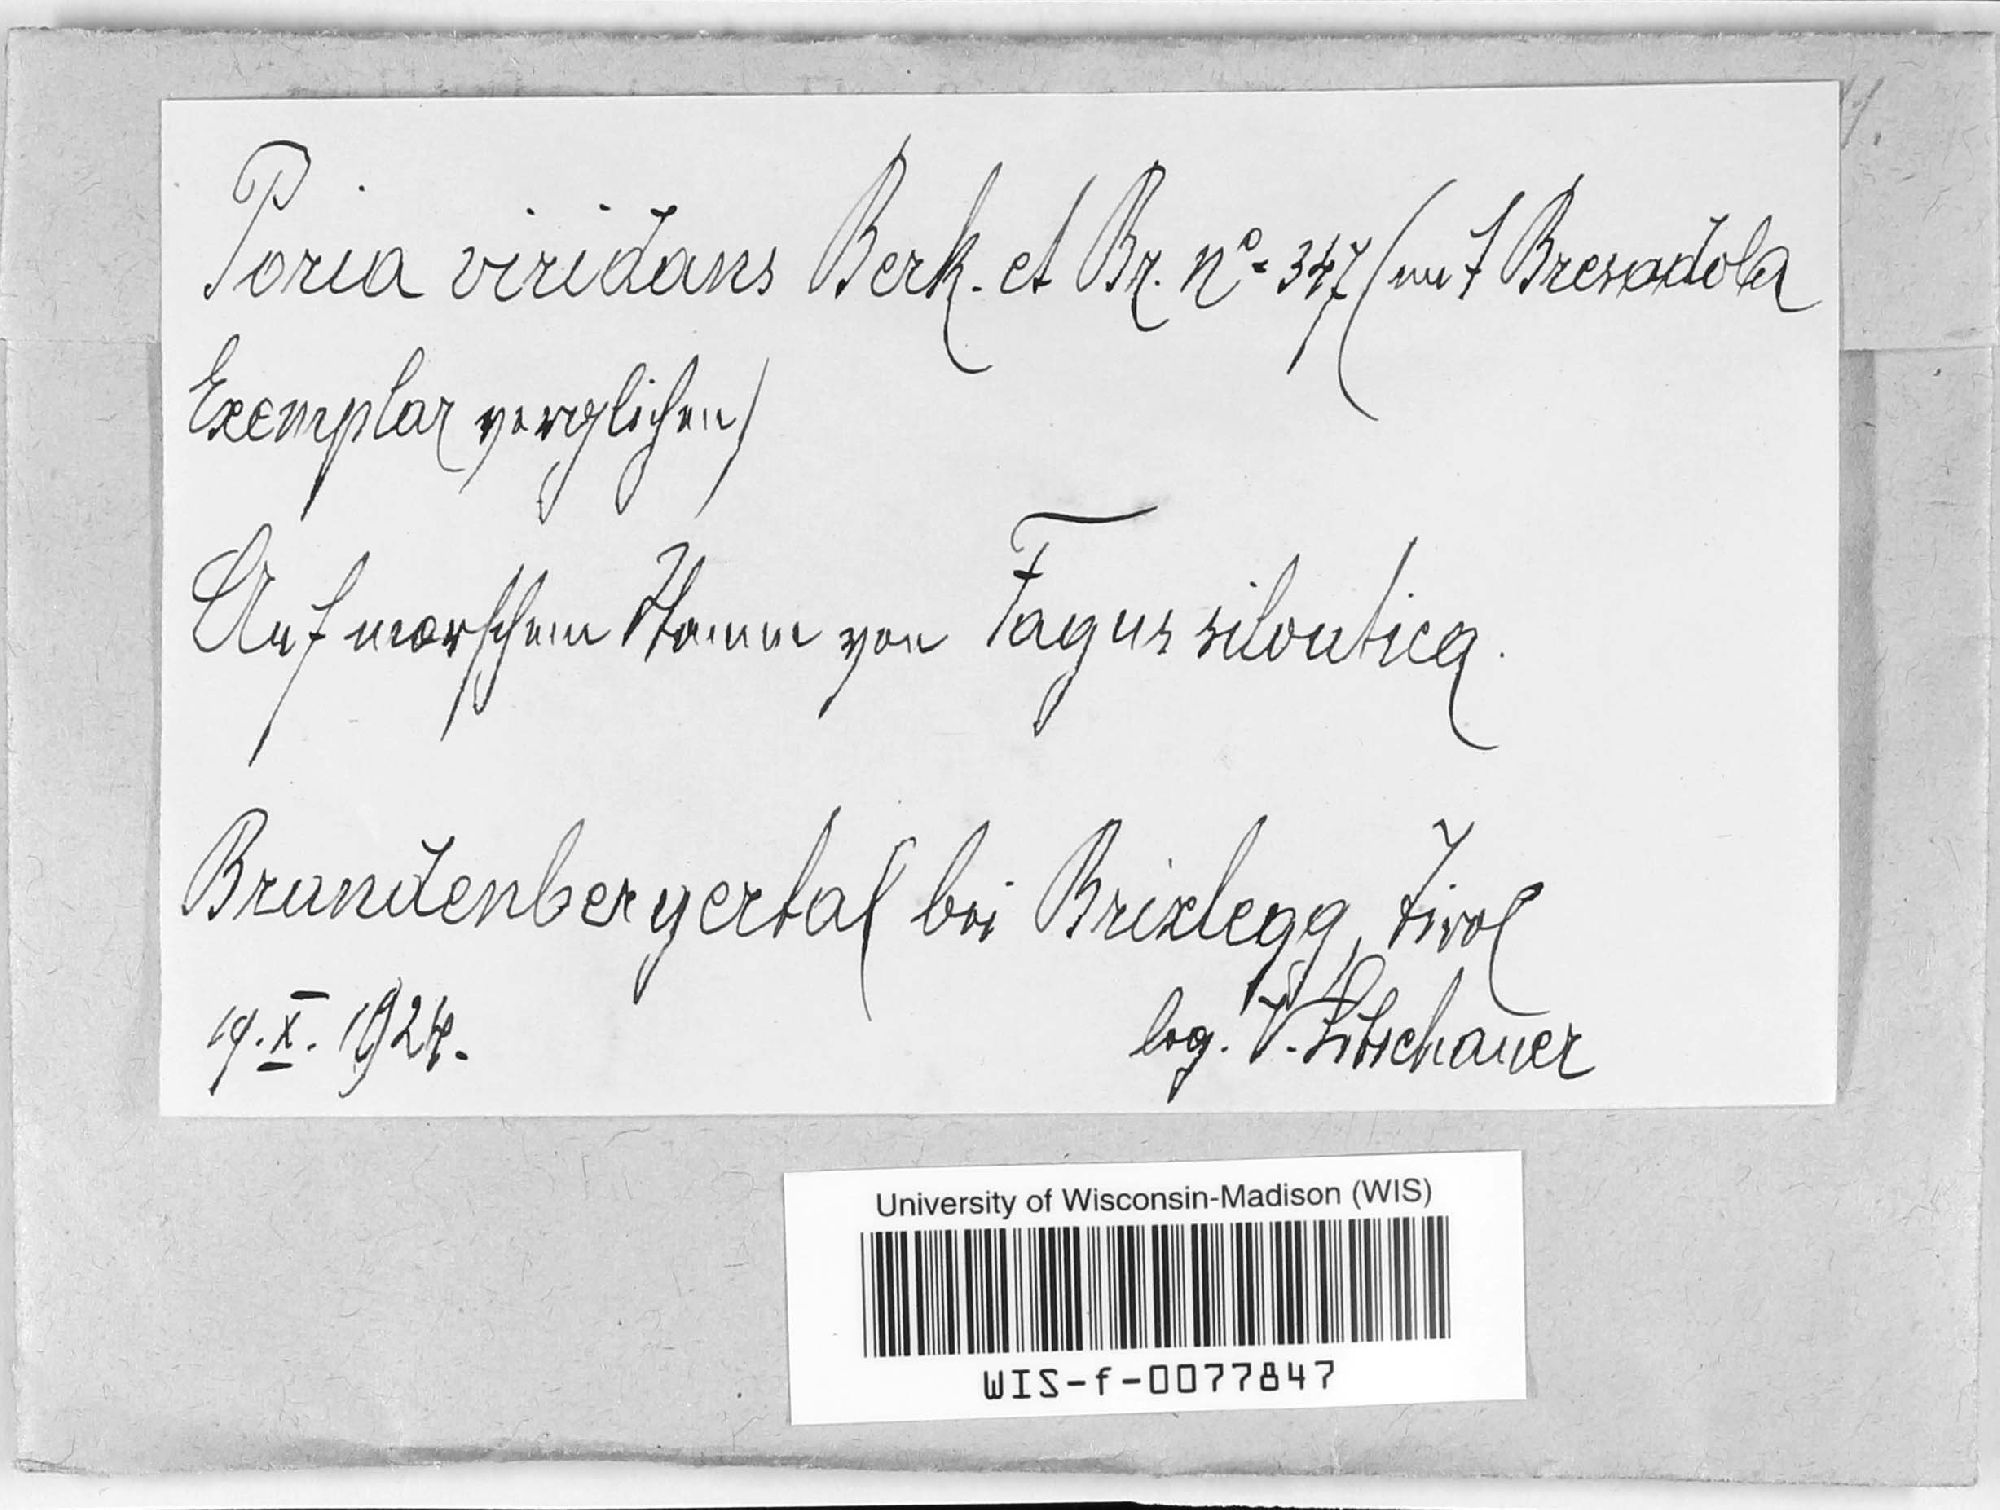 Poria viridans Berk. et Br. no. 347 (mit Bresadola
Exemplar verglichen)
Auf morschem Stamm von Fagus silvatica.
Brandenbergertal bei Brixlegg, Tirol
19. X. 1924.
leg. V. Litschauer
University of Wisconsin-Madison (WIS)
WIS-f-0077847